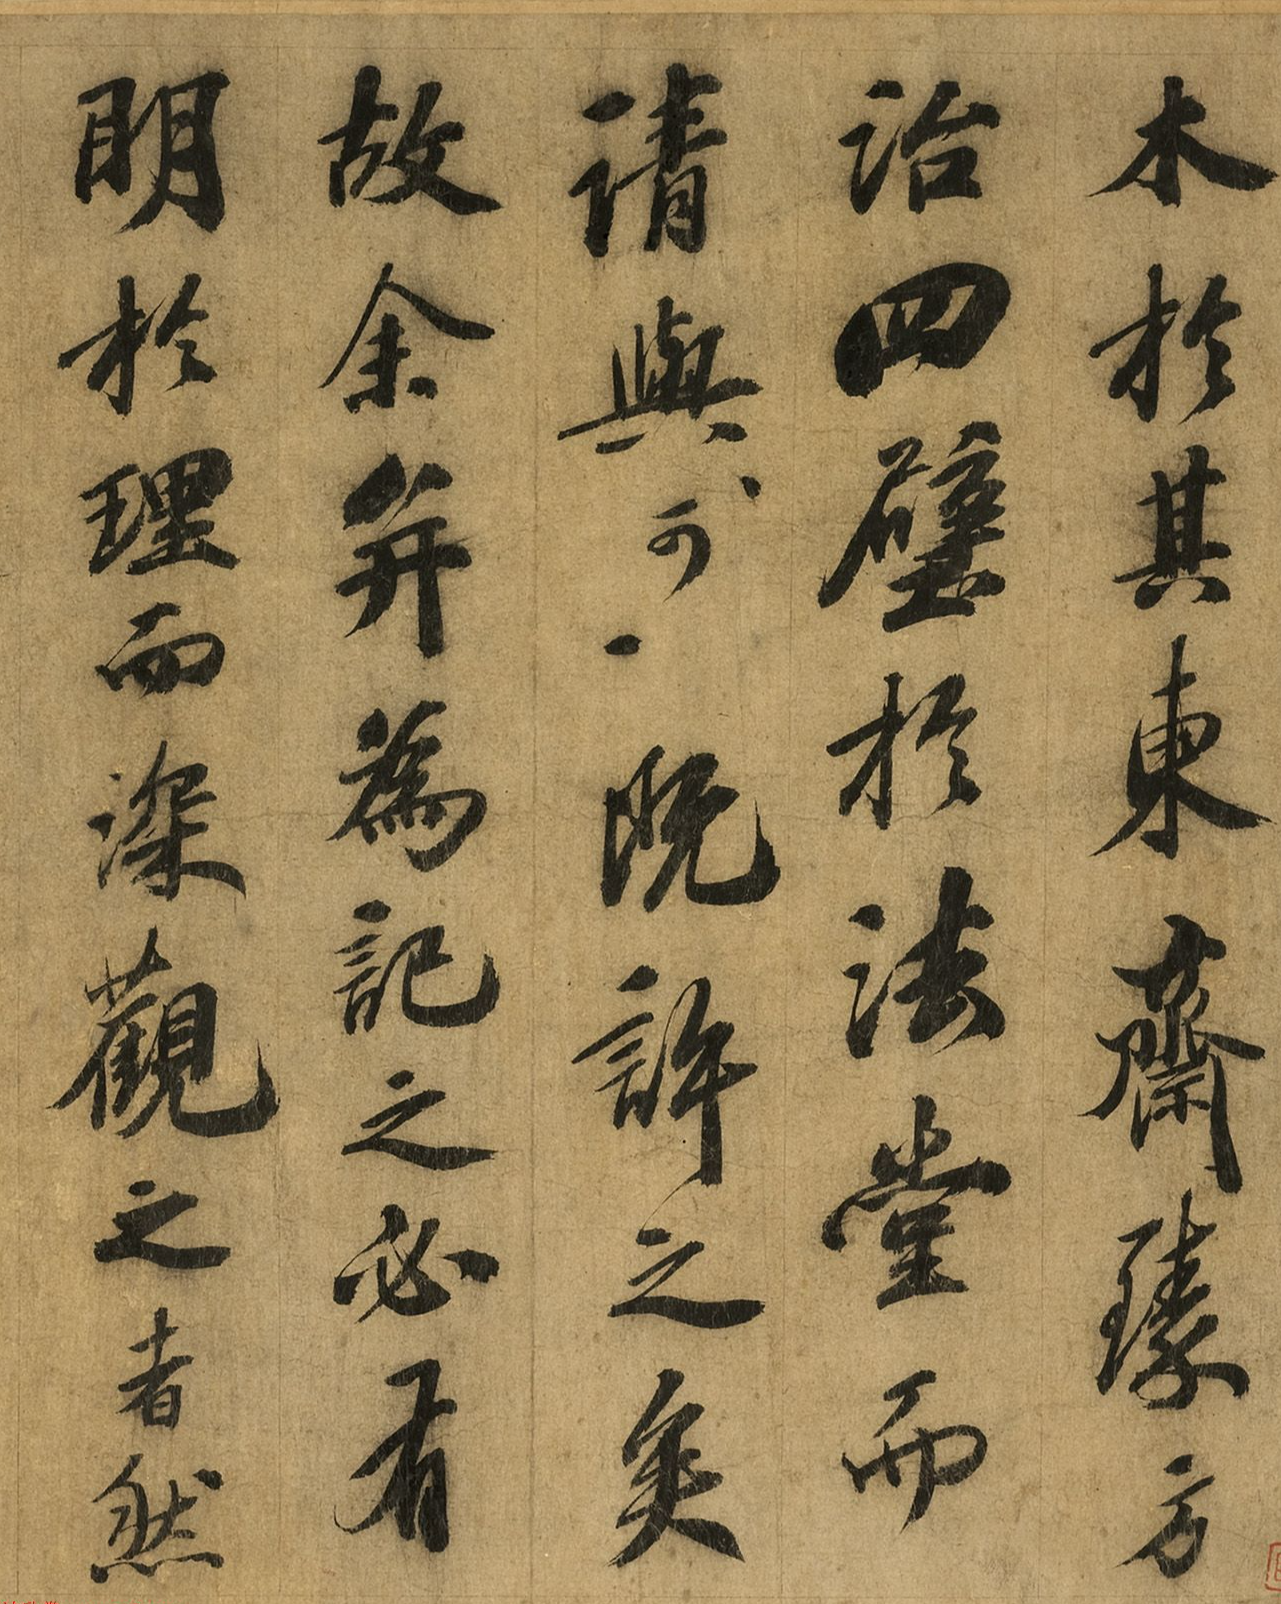 木於其東齋臻方
治四壁於法堂而
請與〻可〻既許之矣
故余并為記之必有
明於理而深觀之者然